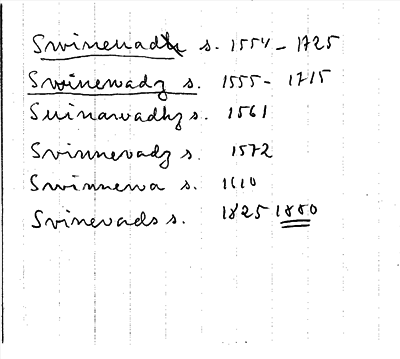 Swinewadz s. 1554 - 1725
Swinewadz s. 1555 - 1715
Suinawadhz s. 1561
Svinnevadz s. 1572
Swinnewa s. 1610
Svinevads s. 1825 1880